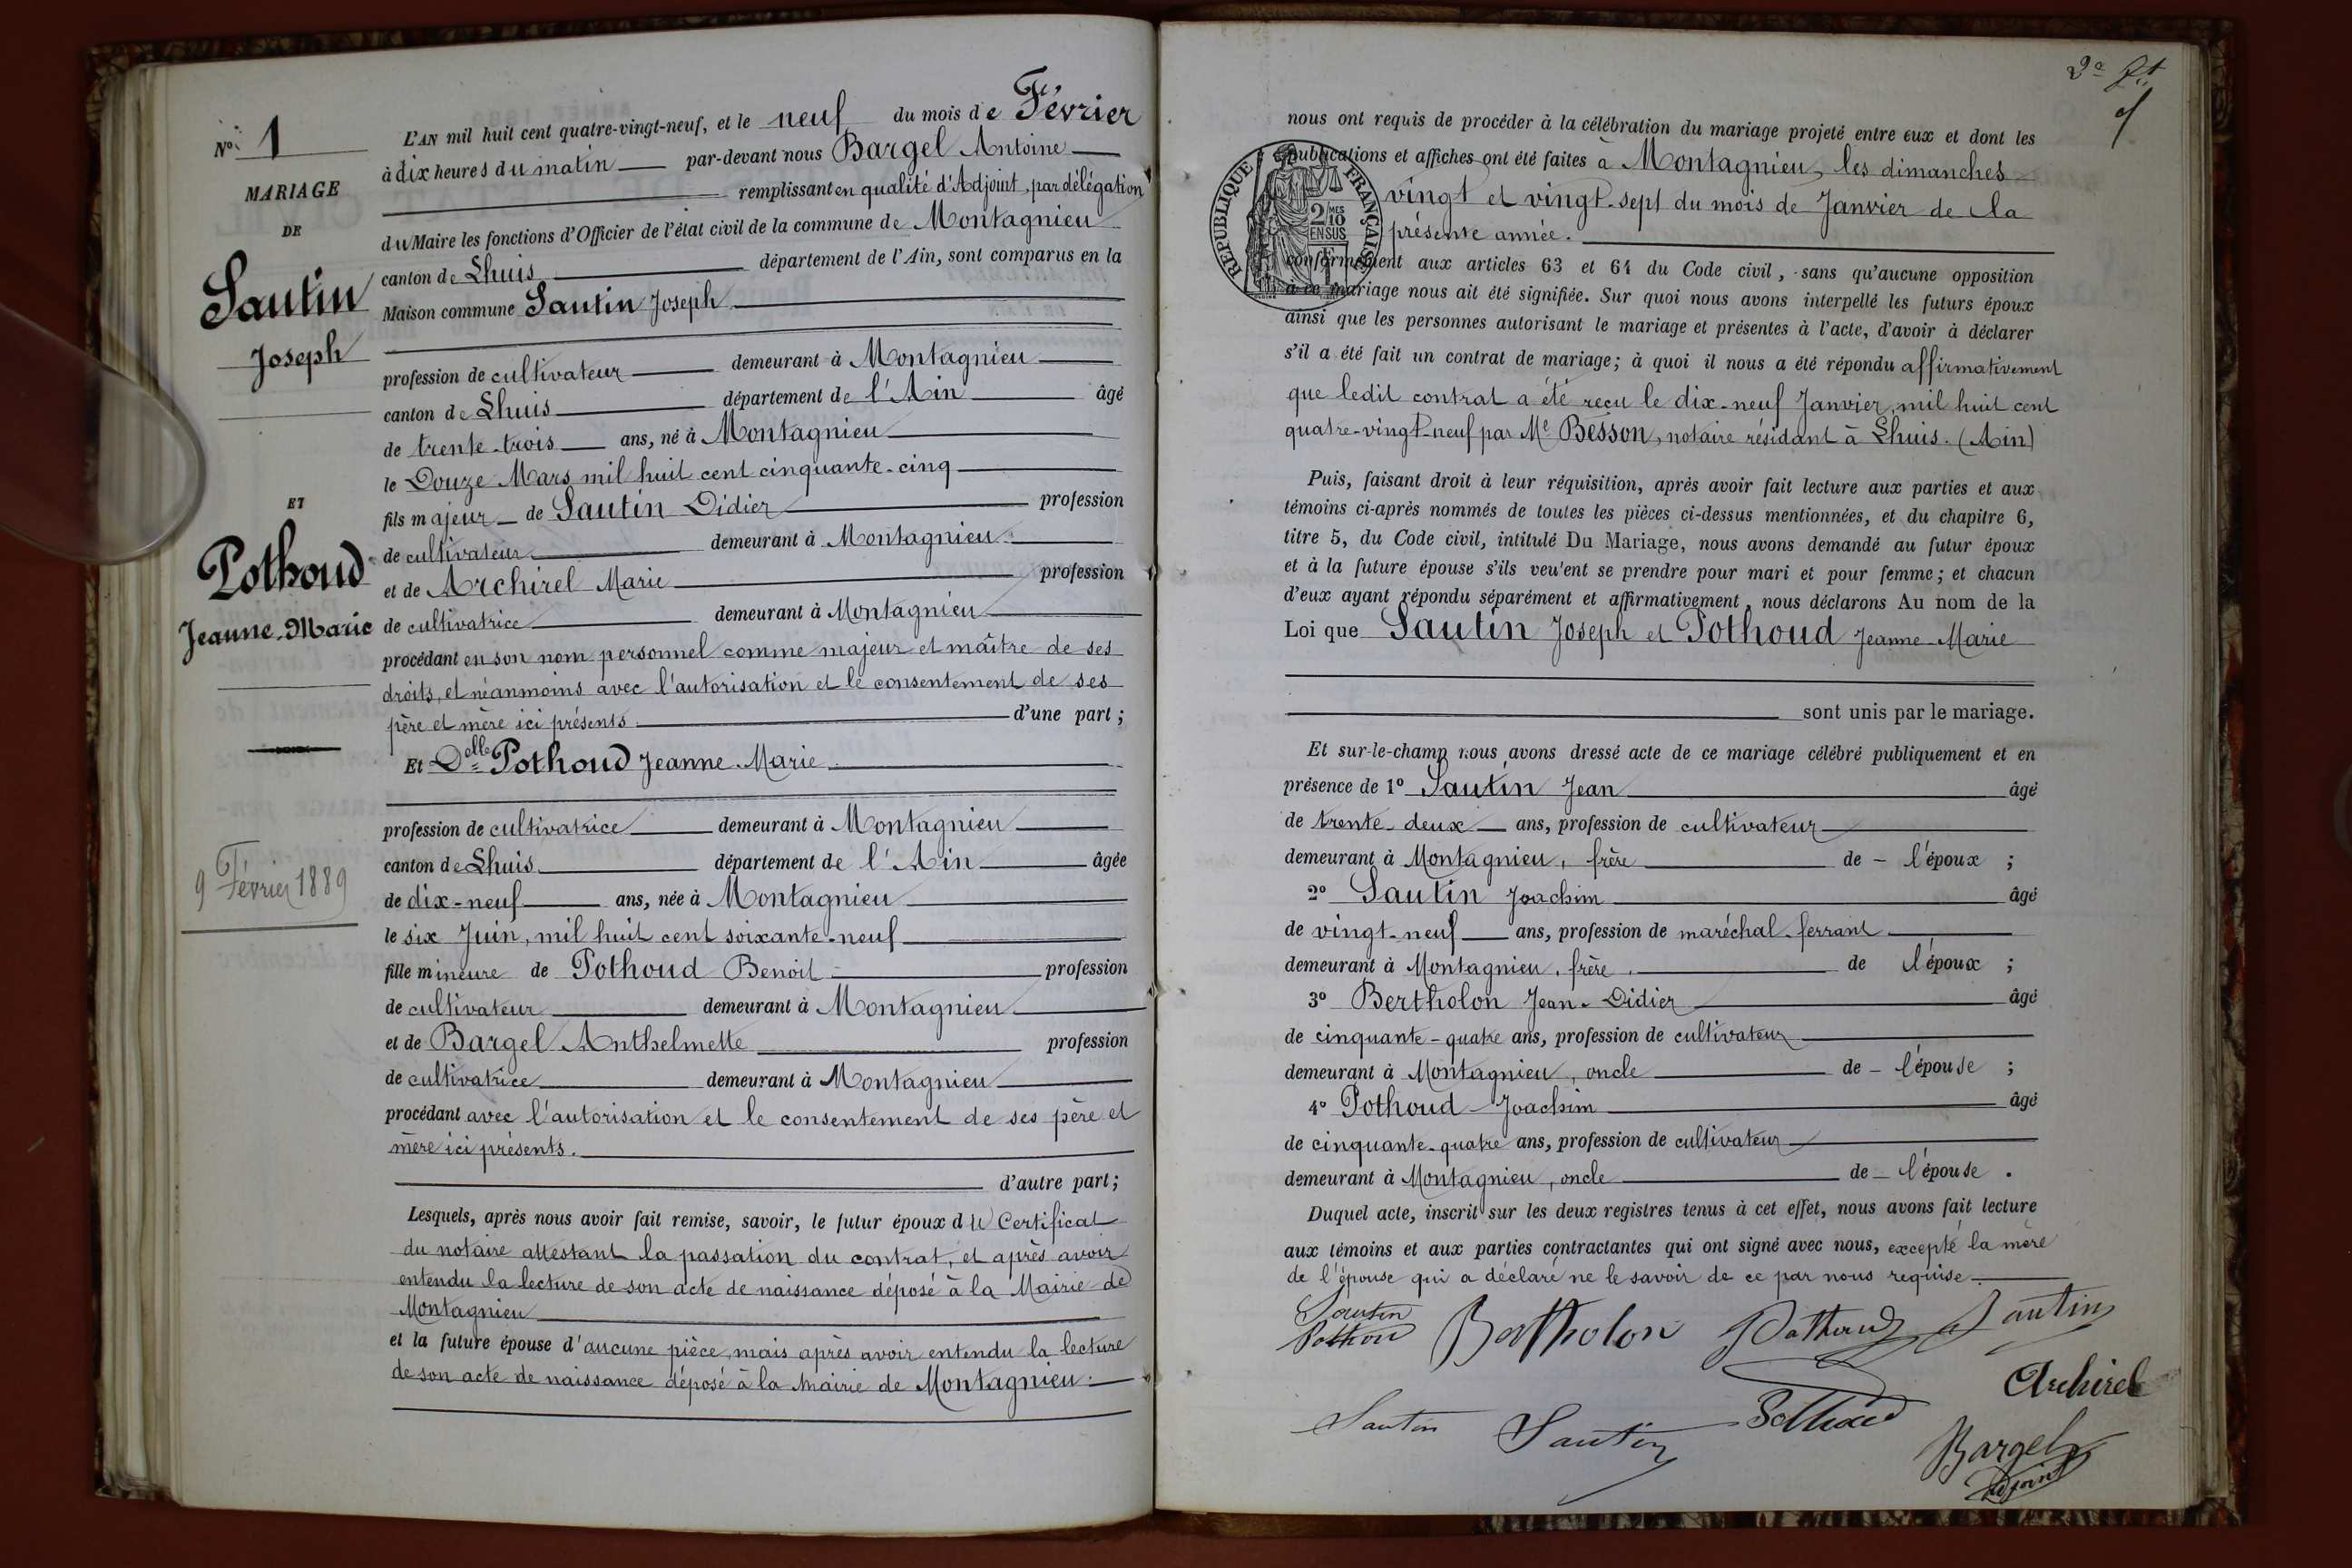 N° 1
MARIAGE
DE
Sautin
Joseph
ET
Pothoud
Jeanne-Marie
9 Février 1889
L'AN mil huit cent quatre-vingt-neuf, et le neuf du mois de Février
à dix heures du matin par-devant nous Bargel Antoine
remplissant en qualité d'Adjoint, par délégation
du Maire les fonctions d'Officier de l'état civil de la commune de Montagnieu
canton de Lhuis département de l'Ain, sont comparus en la
Maison commune Sautin Joseph
profession de cultivateur demeurant à Montagnieu
canton de Lhuis département de l'Ain âgé
de trente-trois ans, né à Montagnieu
le Douze Mars mil huit cent cinquante-cinq
fils majeur de Sautin Didier profession
de cultivateur demeurant à Montagnieu
et de Archirel Marie profession
de cultivatrice demeurant à Montagnieu
procédant en son nom personnel comme majeur et maître de ses
droits, et néanmoins avec l'autorisation et le consentement de ses
père et mère ici présents d'une part;
Et Delle Pothoud Jeanne-Marie
profession de cultivatrice demeurant à Montagnieu
canton de Lhuis département de l'Ain âgée
de dix-neuf ans, née à Montagnieu
le six Juin, mil huit cent soixante-neuf
fille mineure de Pothoud Benoit profession
de cultivateur demeurant à Montagnieu
et de Bargel Anthelmette profession
de cultivatrice demeurant à Montagnieu
procédant avec l'autorisation et le consentement de ses père et
mère ici présents.
d'autre part;
Lesquels, après nous avoir fait remise, savoir, le futur époux du Certificat
du notaire attestant la passation du contrat, et après avoir
entendu la lecture de son acte de naissance déposé à la Mairie de
Montagnieu
et la future épouse d'aucune pièce, mais après avoir entendu la lecture
de son acte de naissance déposé à la Mairie de Montagnieu.
nous ont requis de procéder à la célébration du mariage projeté entre eux et dont les
publications et affiches ont été faites à Montagnieu, les dimanches
vingt et vingt-sept du mois de Janvier de la
présente année.
RÉPUBLIQUE FRANÇAISE
2/10 MES
EN SUS
conformément aux articles 63 et 64 du Code civil, sans qu'aucune opposition
à ce mariage nous ait été signifiée. Sur quoi nous avons interpellé les futurs époux
ainsi que les personnes autorisant le mariage et présentes à l'acte, d'avoir à déclarer
s'il a été fait un contrat de mariage; à quoi il nous a été répondu affirmativement
que ledit contrat a été reçu le dix-neuf Janvier, mil huit cent
quatre-vingt-neuf par Me Besson, notaire résidant à Lhuis. (Ain)
Puis, faisant droit à leur réquisition, après avoir fait lecture aux parties et aux
témoins ci-après nommés de toutes les pièces ci-dessus mentionnées, et du chapitre 6,
titre 5, du Code civil, intitulé Du Mariage, nous avons demandé au futur époux
et à la future épouse s'ils veu'ent se prendre pour mari et pour femme; et chacun
d'eux ayant répondu séparément et affirmativement, nous déclarons Au nom de la
Loi que Sautin Joseph et Pothoud Jeanne-Marie
sont unis par le mariage.
Et sur-le-champ nous avons dressé acte de ce mariage célébré publiquement et en
présence de 1° Sautin Jean âgé
de trente-deux ans, profession de cultivateur
demeurant à Montagnieu, frère de l'époux ;
2° Sautin Joachim âgé
de vingt-neuf ans, profession de maréchal-ferrant
demeurant à Montagnieu, frère de l'époux ;
3° Bertholon Jean-Didier âgé
de cinquante-quatre ans, profession de cultivateur
demeurant à Montagnieu, oncle de l'épouse ;
4° Pothoud Joachim âgé
de cinquante-quatre ans, profession de cultivateur
demeurant à Montagnieu, oncle de l'épouse .
Duquel acte, inscrit sur les deux registres tenus à cet effet, nous avons fait lecture
aux témoins et aux parties contractantes qui ont signé avec nous, excepté la mère
de l'épouse qui a déclaré ne le savoir de ce par nous requise.
Sautin
Pothou Bertholon Pothoud Sautin
Archirel
Sautin Sautin Pothoud
Bargel
Adjoint